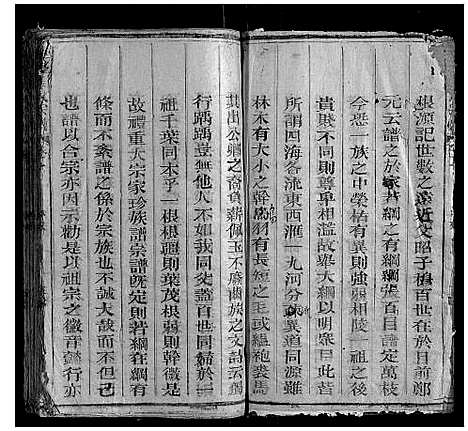 根源記世數之遠近父昭子穆百世在於目前鄭
元云譜之於家若綱之有綱綱張百目譜定萬枝
今恐一族之中榮枯有異則強弱相陵一祖之後
貴賤不同則尊卑相濫故舉大綱以明衆目此皆
所謂四海各流東西滙一九河分派異道同源雖
林木有大小之幹鳳羽有長短之毛或縕袍裘馬
其出公姻之裔負薪佩玉不廢齒族之文詩云獨
行踽踽豈無他人不如我同父譜百世同婦於一
祖千葉同本乎一根根疆則葉茂根弱則幹微是
故禮重大宗家珍族譜宗譜旣定則若綱在綱有
條而不紊譜之係於宗族也不誠大哉而不但已
也譜以合宗亦因示勸是以祖宗之徽音懿行亦